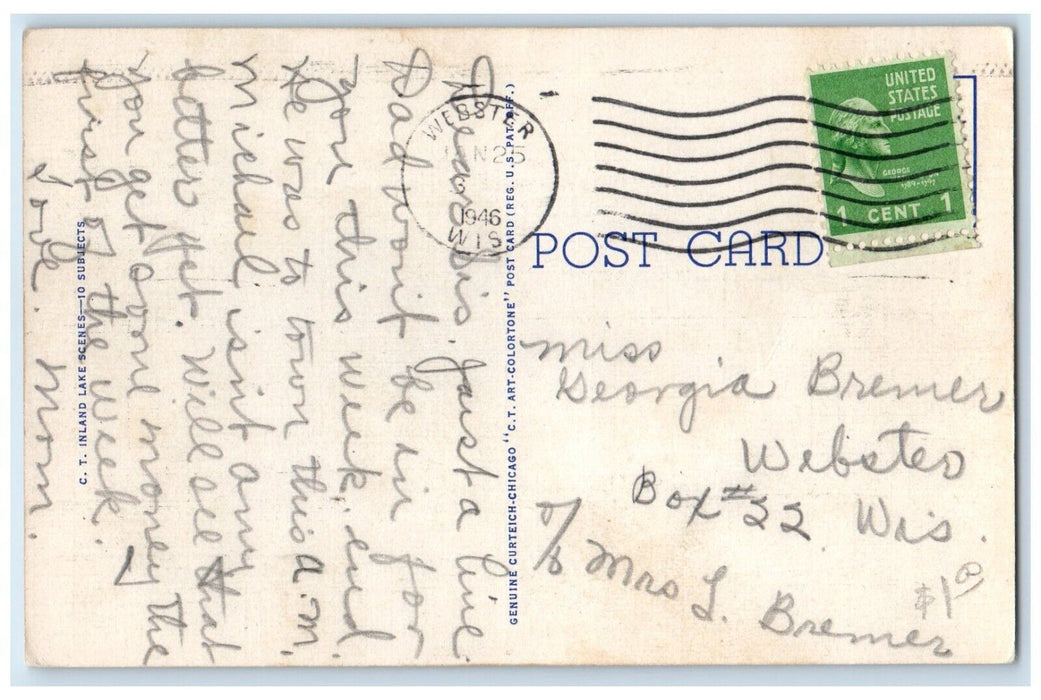 Dearest Sis. Just a line
Dad won't be in for
you this week end
He was to town this a.m.
Michael isn't any
better yet. Will see that
you get one money the
first of the week.
Love. Mom.
C. T. INLAND LAKE SCENES—10 SUBJECTS
GENUINE CURTEICH-CHICAGO "C.T. ART-COLORTONE" POST CARD (REG. U.S. PAT. OFF.)
WEBSTER
25
1946
WIS
UNITED
STATES
POSTAGE
GEORGE
1789-1797
1 CENT 1
POST CARD
Miss
Georgia Bremer
Webster
Box #22 Wis.
c/o Mrs L. Bremer
$1⁰⁰